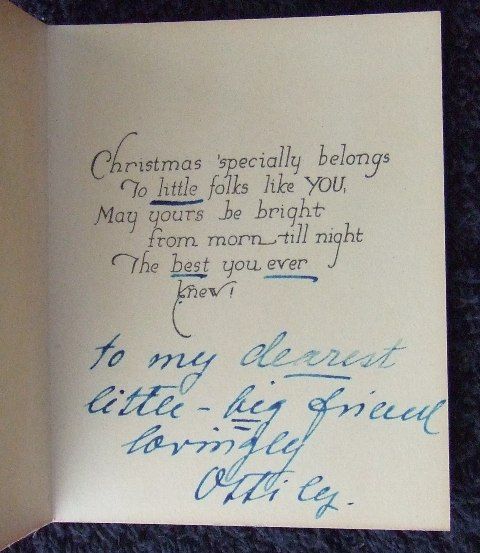 Christmas 'specially belongs
To little folks like YOU,
May yours be bright
from morn till night
The best you ever
knew!
to my dearest
little - big friend
lovingly
Ottily.